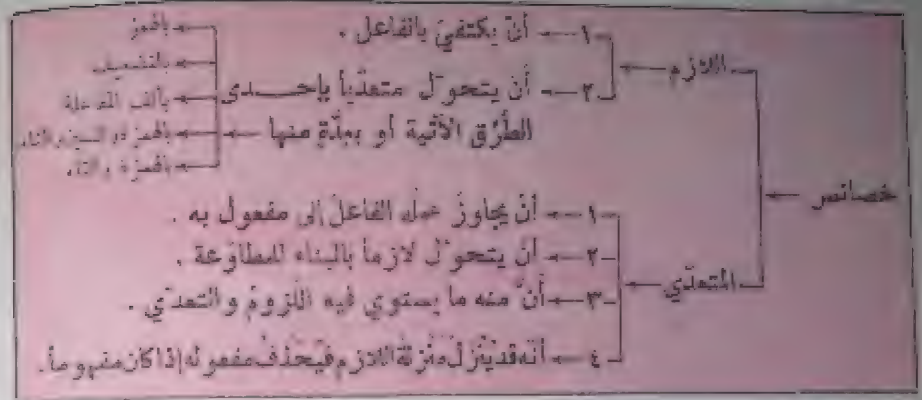 خصائص
اللازم
١- أنْ يكتفيَ بالفاعل .
٢- أن يتحوّل متعدّياً بإحـــدى
الطُّرُق الآتية أو بعدّةٍ منها
بالهمز
بالتضعيف
بألف المفاعلة
بالهمز والسين والتاء
بالهمزة والتاء
المتعدّي
١- أنْ يجاوزَ عمله الفاعلَ إلى مفعول به .
٢- أن يتحوّلَ لازماً بالبناء للمطاوَعة .
٣- أنّ منه ما يستوي فيه اللّزومُ والتعدّي .
٤- أنه قد يُنزل منزلة اللازم فيحذف مفعوله إذا كان مفهوماً.